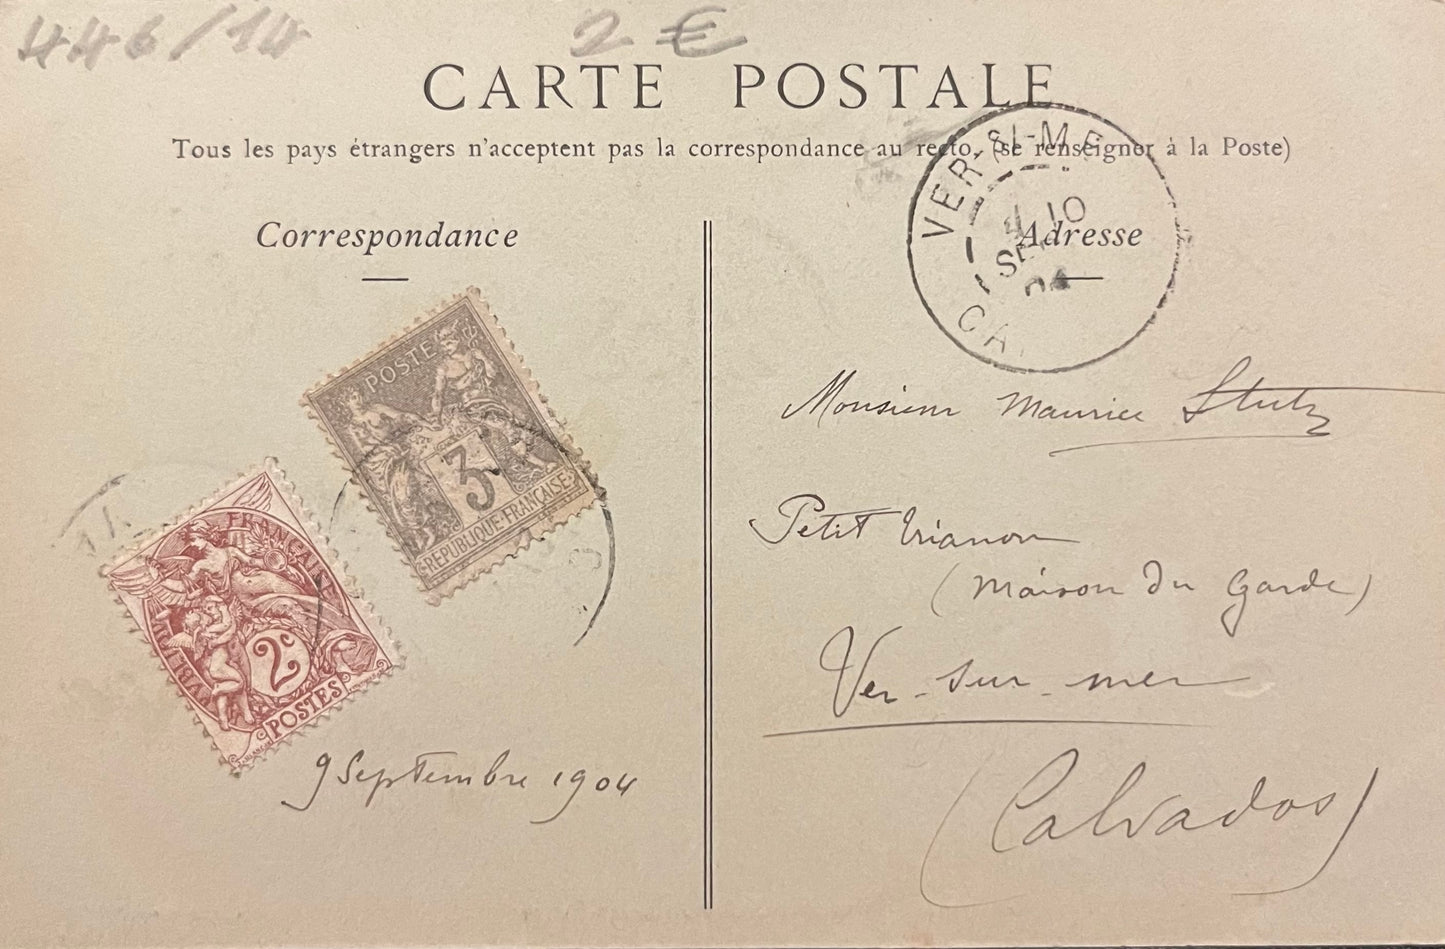 446/14
2 €
CARTE POSTALE
Tous les pays étrangers n'acceptent pas la correspondance au recto. (se renseigner à la Poste)
Correspondance
Adresse
VER-S-MER
10
SEPT
04
CA
POSTE
3
REPUBLIQUE·FRANÇAISE
FRANÇAISE
2c
POSTES
9 Septembre 1904
Monsieur Maurice Stutz
Petit trianon
(Maison du Garde)
Ver-sur-mer
(Calvados)